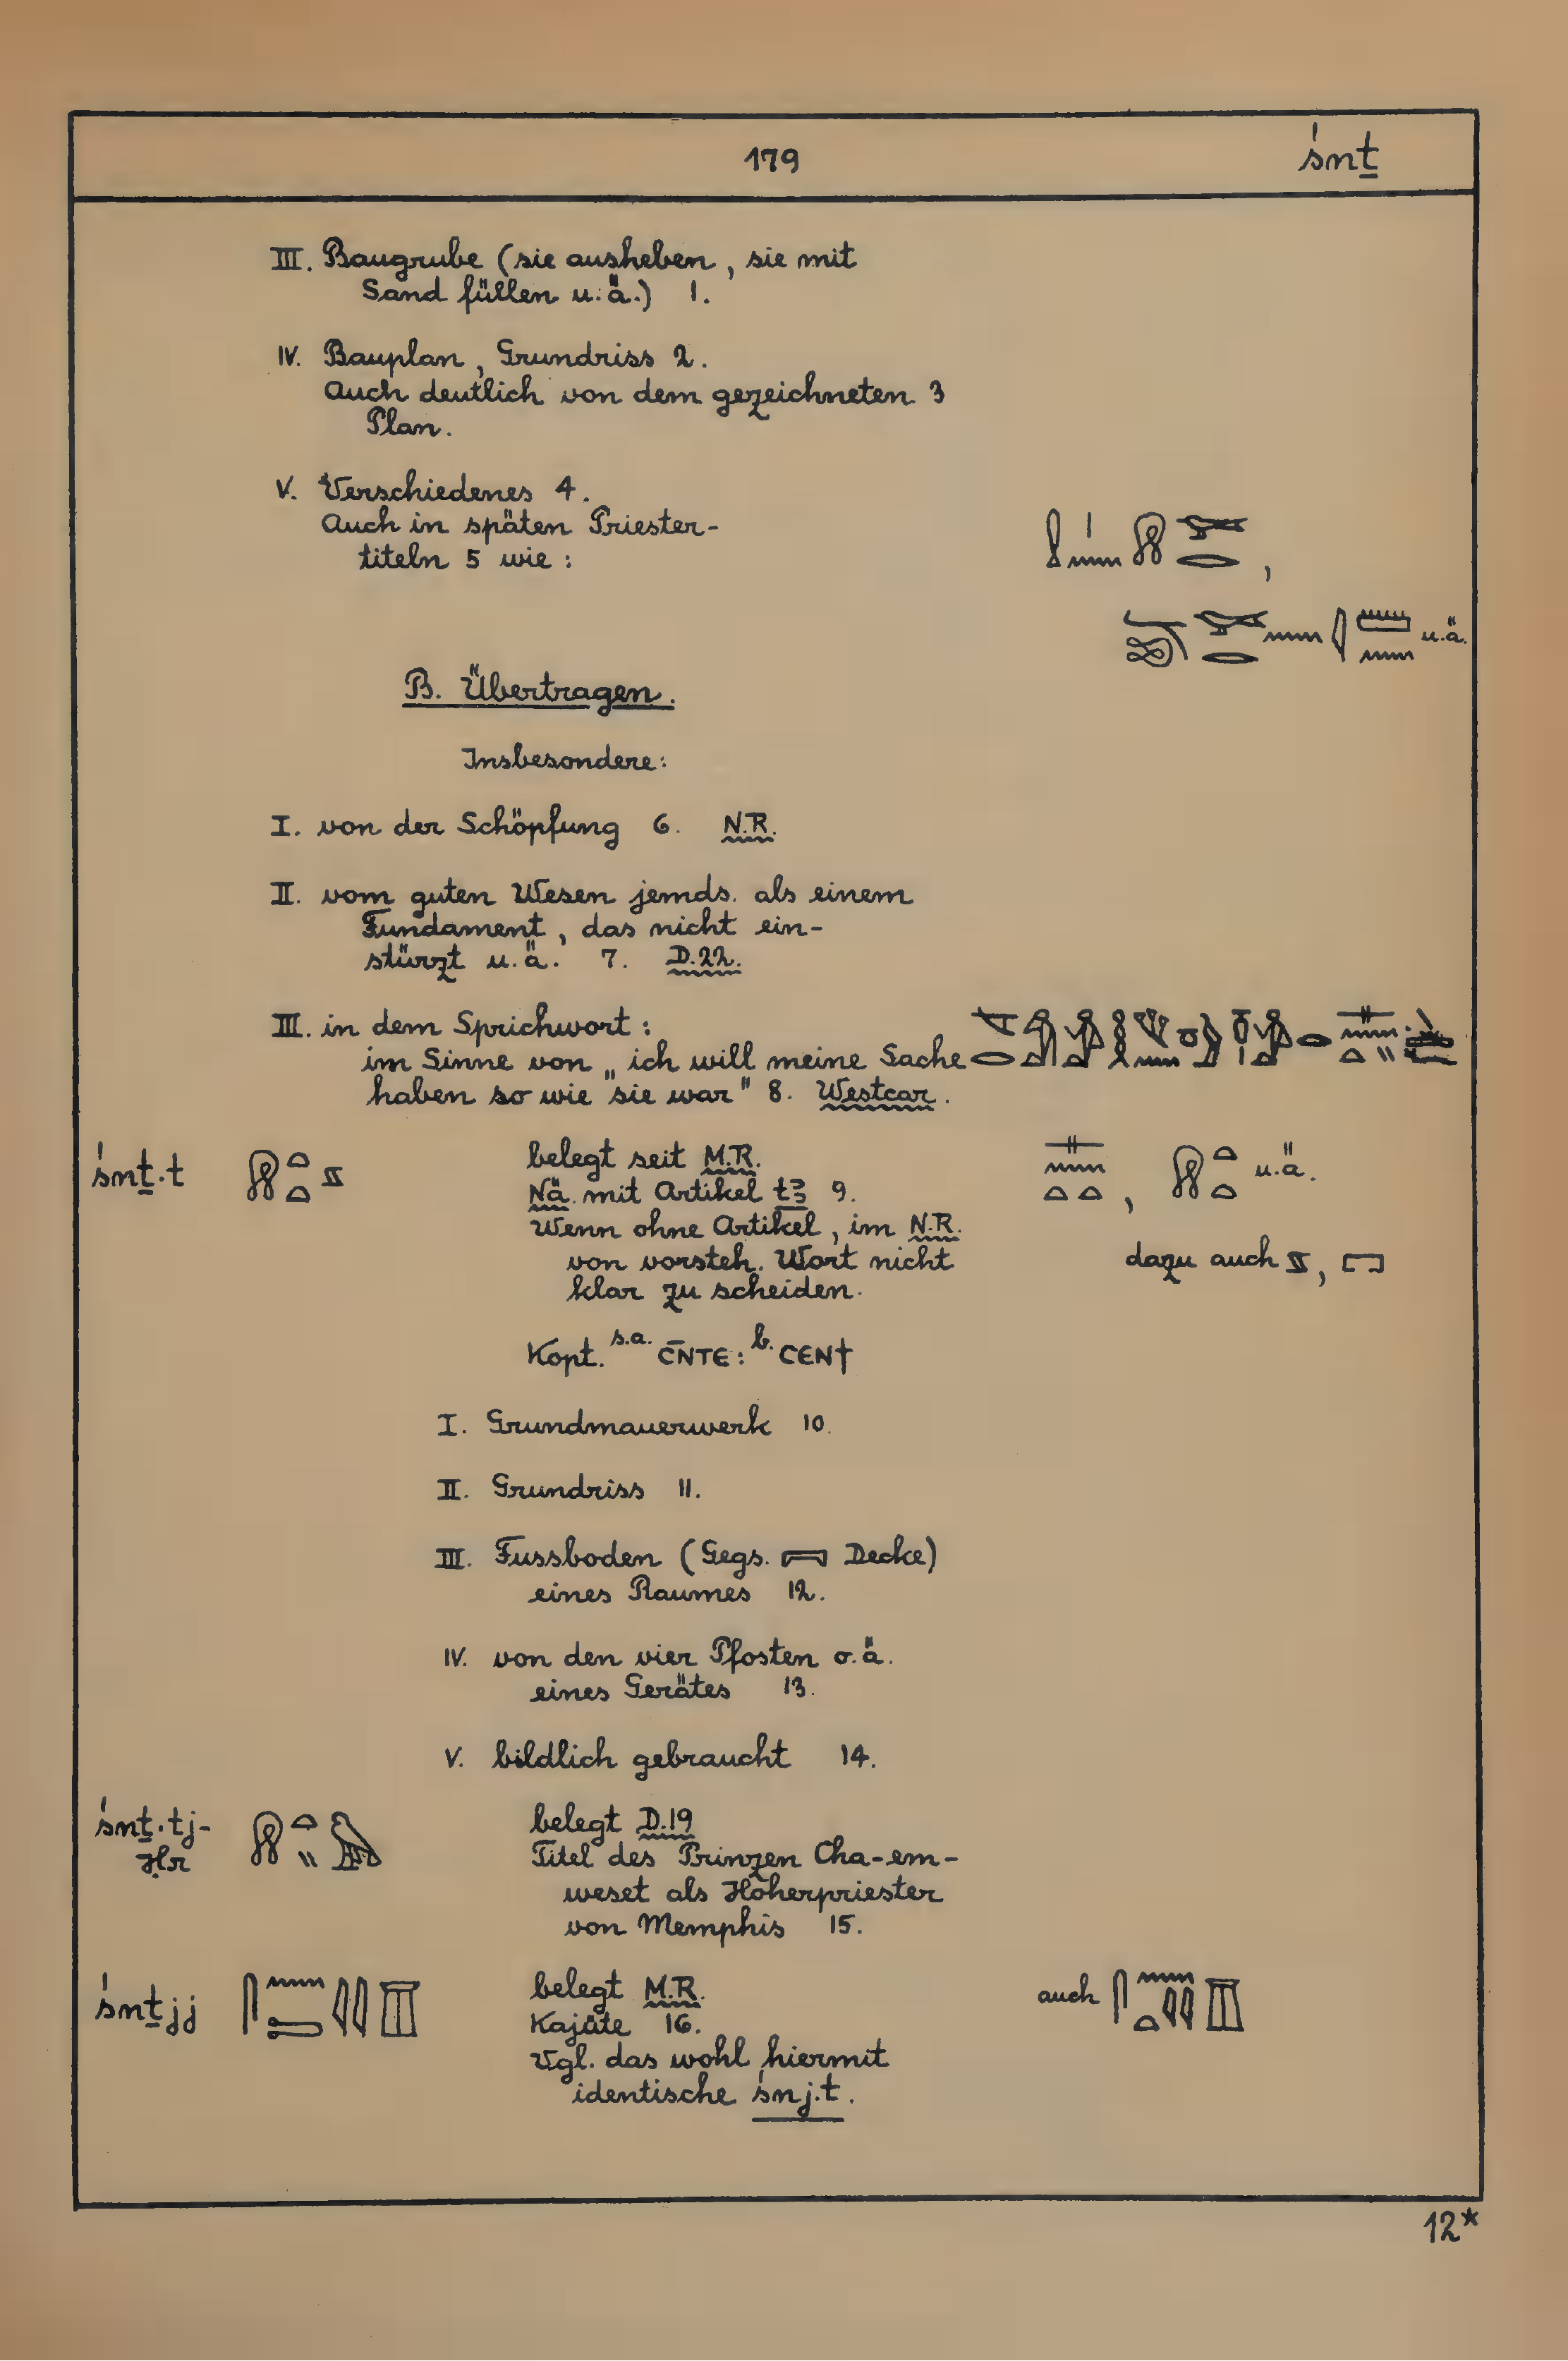 179 śnṯ
III. Baugrube (sie ausheben, sie mit
Sand füllen u.ä.) 1.
IV. Bauplan, Grundriss 2.
Auch deutlich von dem gezeichneten 3
Plan.
V. Verschiedenes 4.
Auch in späten Priester-
titeln 5 wie:
,
u.ä.
B. Übertragen.
Insbesondere:
I. von der Schöpfung 6. N.R.
II. vom guten Wesen jemds. als einem
Fundament, das nicht ein-
stürzt u.ä. 7. D.22.
III. in dem Sprichwort:
im Sinne von „ich will meine Sache
haben so wie sie war" 8. Westcar.
śnṯ.t
belegt seit M.R.
Nä. mit Artikel tꜣ 9.
Wenn ohne Artikel, im N.R.
von vorsteh. Wort nicht
klar zu scheiden.
, u.ä.
dazu auch ,
Kopt. s.a. ⲤⲚ̅ⲦⲈ: b. ⲤⲈⲚϮ
I. Grundmauerwerk 10.
II. Grundriss 11.
III. Fussboden (Gegs. Decke)
eines Raumes 12.
IV. von den vier Pfosten o.ä.
eines Gerätes 13.
V. bildlich gebraucht 14.
śnṯ.tj-
Ḥr
belegt D.19
Titel des Prinzen Cha-em-
weset als Hoherpriester
von Memphis 15.
śnṯjj
belegt M.R.
Kajüte 16.
Vgl. das wohl hiermit
identische śnj.t.
auch
12*